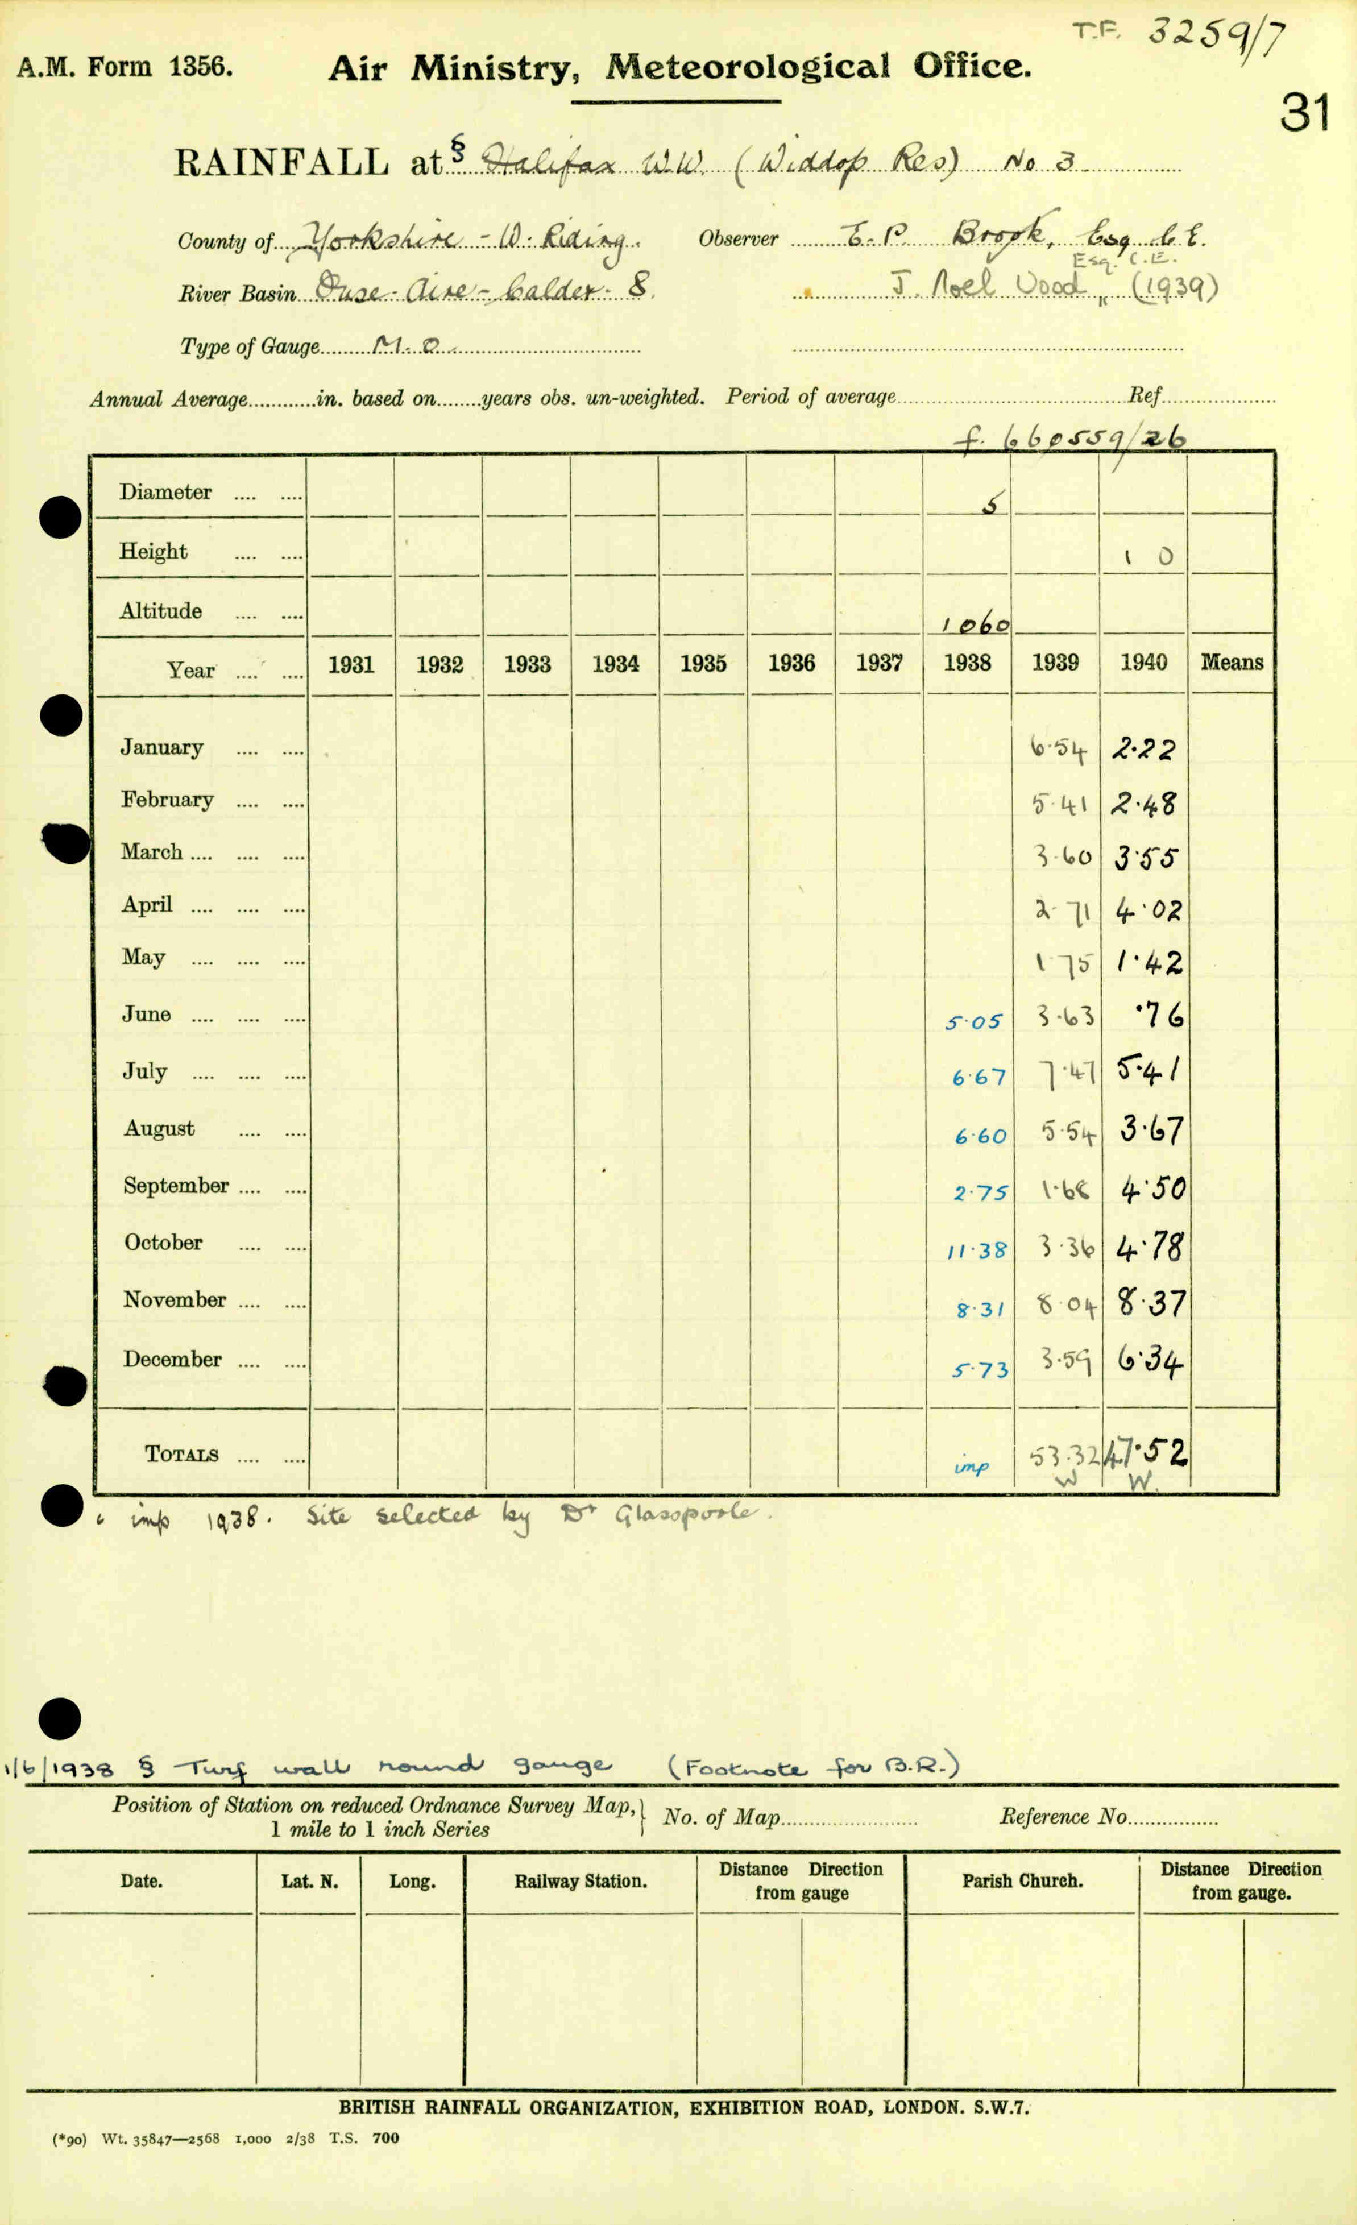 T.F. 3259/7
A.M. Form 1356. Air Ministry, Meteorological Office.
31
RAINFALL at § Halifax W.W. (Widdop Res) No 3
County of Yorkshire - W. Riding. Observer E. P. Brook, Esq C.E.
Esq. C.E.
River Basin Ouse - Aire - Calder - 8. J. Noel Wood " (1939)
Type of Gauge M.O.
Annual Average............in. based on........years obs. un-weighted. Period of average........ Ref........
f. 660559/26
Diameter .... .... 5
Height .... .... 1 0
Altitude .... .... 1060
Year .... .... 1931 1932 1933 1934 1935 1936 1937 1938 1939 1940 Means
January .... .... 6.54 2.22
February .... .... 5.41 2.48
March .... .... .... 3.60 3.55
April .... .... .... 2.71 4.02
May .... .... .... 1.75 1.42
June .... .... .... 5.05 3.63 .76
July .... .... .... 6.67 7.47 5.41
August .... .... 6.60 5.54 3.67
September .... .... 2.75 1.68 4.50
October .... .... 11.38 3.36 4.78
November .... .... 8.31 8.04 8.37
December .... .... 5.73 3.59 6.34
TOTALS .... .... imp 53.32 47.52
W W.
imp 1938. Site selected by Dr Glasspoole.
1/6/1938 § Turf wall round gauge (Footnote for B.R.)
Position of Station on reduced Ordnance Survey Map, } No. of Map........ Reference No........
1 mile to 1 inch Series
Date. Lat. N. Long. Railway Station. Distance Direction from gauge Parish Church. Distance Direction from gauge.
BRITISH RAINFALL ORGANIZATION, EXHIBITION ROAD, LONDON. S.W.7.
(*90) Wt. 35847—2568 1,000 2/38 T.S. 700